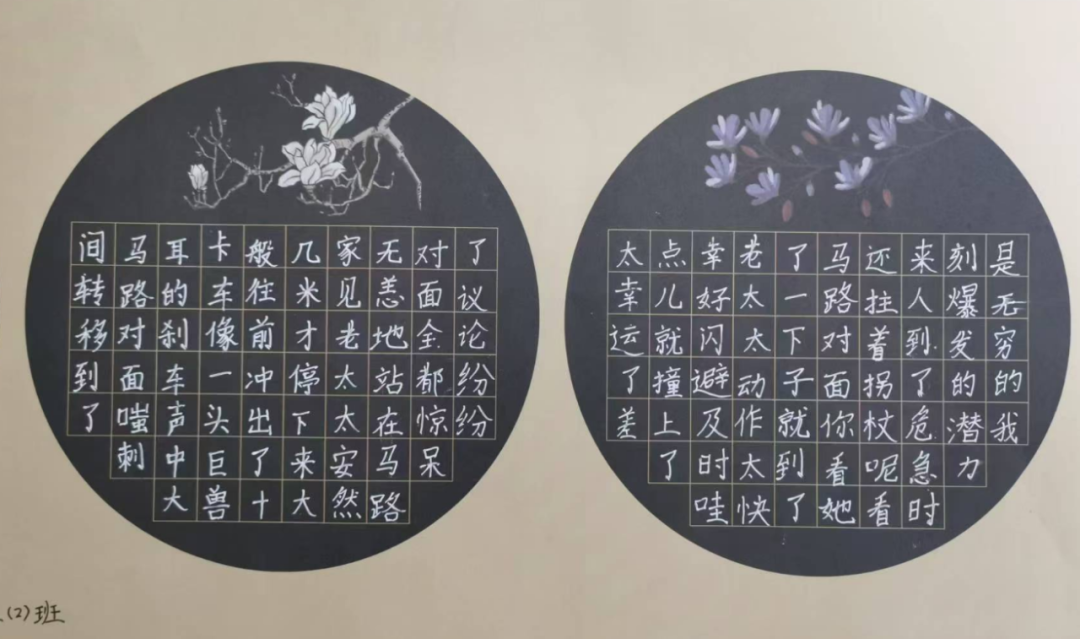 间转移到了
马路对面嗤刺
耳的刹车声中大
卡车像一头巨兽
般往前冲出了十
几米才停下来大
家见老太太安然
无恙地站在马路
对面全都惊呆
了议论纷纷
太幸运了差
点儿就撞上了
幸好闪避及时哇
老太太动作太快
了一下子就到了
马路对面你看她
还拄着拐杖呢看
来人到了危急时
刻爆发的潜力
是无穷的我
(2)班